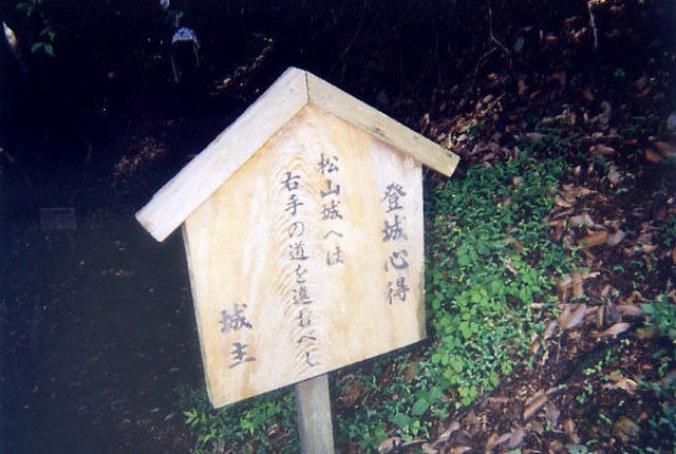 登城心得
松山城へは
右手の道を進むべし
城主